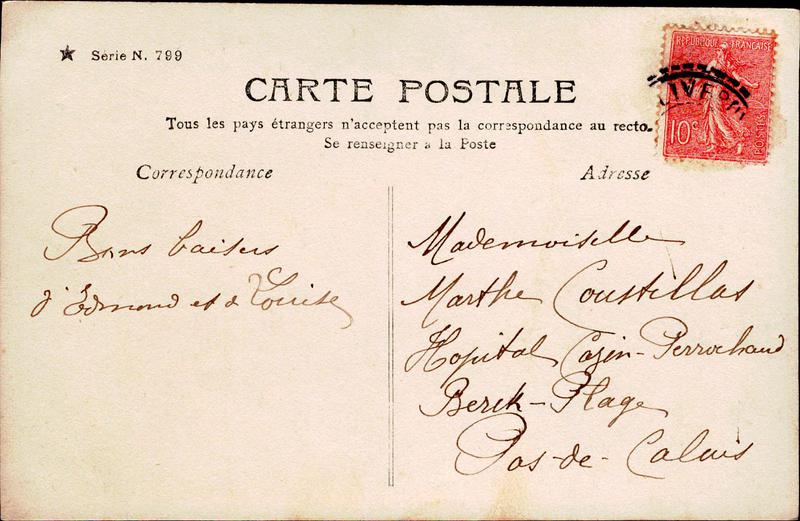 ★ Série N. 799
CARTE POSTALE
Tous les pays étrangers n'acceptent pas la correspondance au recto.
Se renseigner à la Poste
Correspondance
Adresse
REPUBLIQUE FRANÇAISE
10c
POSTES
Bons baisers
d'Edmond et de Louise
Mademoiselle
Marthe Coustillas
Hopital Cazin-Perrochaud
Berck-Plage
Pas-de-Calais